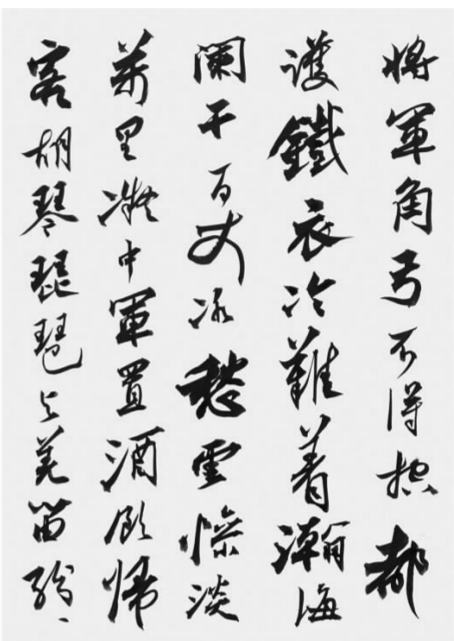 將軍角弓不得控都
護鐵衣冷難着瀚海
闌干百丈冰愁雲慘淡
萬里凝中軍置酒飲歸
客胡琴琵琶与羌笛紛、